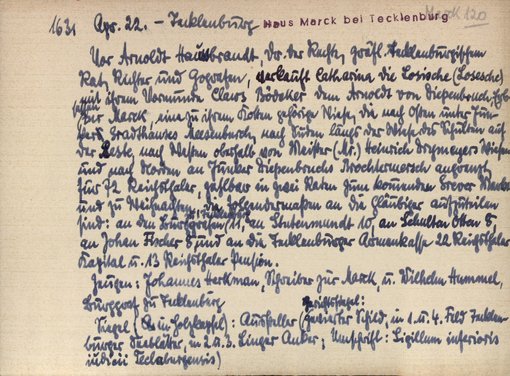 1631 Apr. 22. – Tecklenburg Haus Marck bei Tecklenburg Marck 120
Vor Arnoldt Hausbrandt, Dr. der Rechte, gräfl. Tecklenburgischem
Rat, Richter und Gografen, verkauft Catharina die Losische (Losesche)
mit ihrem Vormunde Claws Bödeker dem Arnoldt von Diepenbruch,
zur Marck, eine zu ihrem Kotten gehörige Wiese, die nach Osten unter Jun-
kers Meesenbusch, nach Süden längs der Wiese des Schulten auf
der Leste, nach Westen oberhalb von Meister (Mr.) Heinrich Wiesen
und nach Norden an Junker Diepenbruchs Brochtermersch angrenzt,
für 72 Reichsthaler, zahlbar in zwei Raten zum
und zu Weihnachten, die folgendermaßen an die Gläubiger aufzuteilen
sind: an den Burggrafen 11, an Stutenmundt 10, an Schulten Otten 8,
an Johan Fischer 8 und an die Tecklenburger Armenkasse 22 Reichsthaler
Kapital u. 13 Reichsthaler Pension.
Zeugen: Johannes Herkman, Schreiber zur Marck, u. Wilhelm Hummel,
Burggraf zu Tecklenberg
Gerichtssiegel:
Siegel (In Holzkapsel): Aussteller (gevierter Schild, in 1. u. 4. Feld Tecklen-
burger Seeblätter, in 2. u. 3. Linger Anker; Umschrift: Sigillum inferioris
iudicii Teclaburgensis)